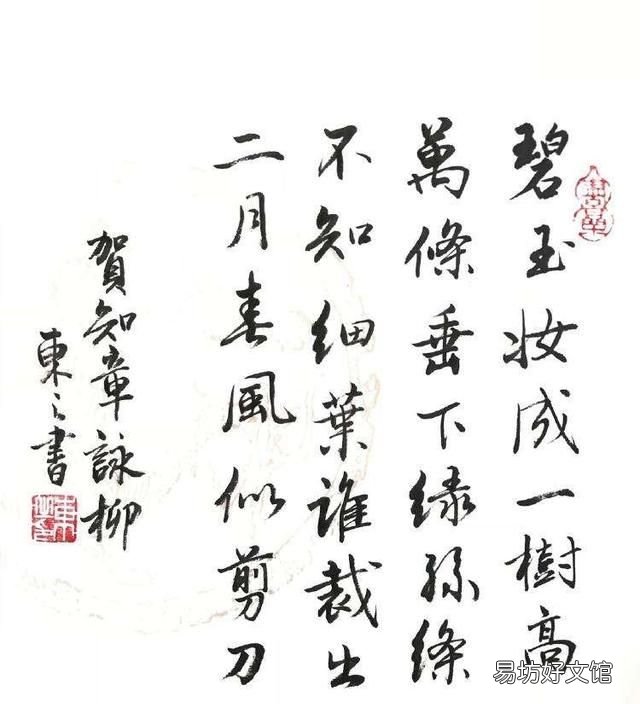 碧玉妆成一樹高
萬條垂下緑絲絛
不知細葉誰裁出
二月春風似剪刀
賀知章詠柳
東之書
易坊好文馆